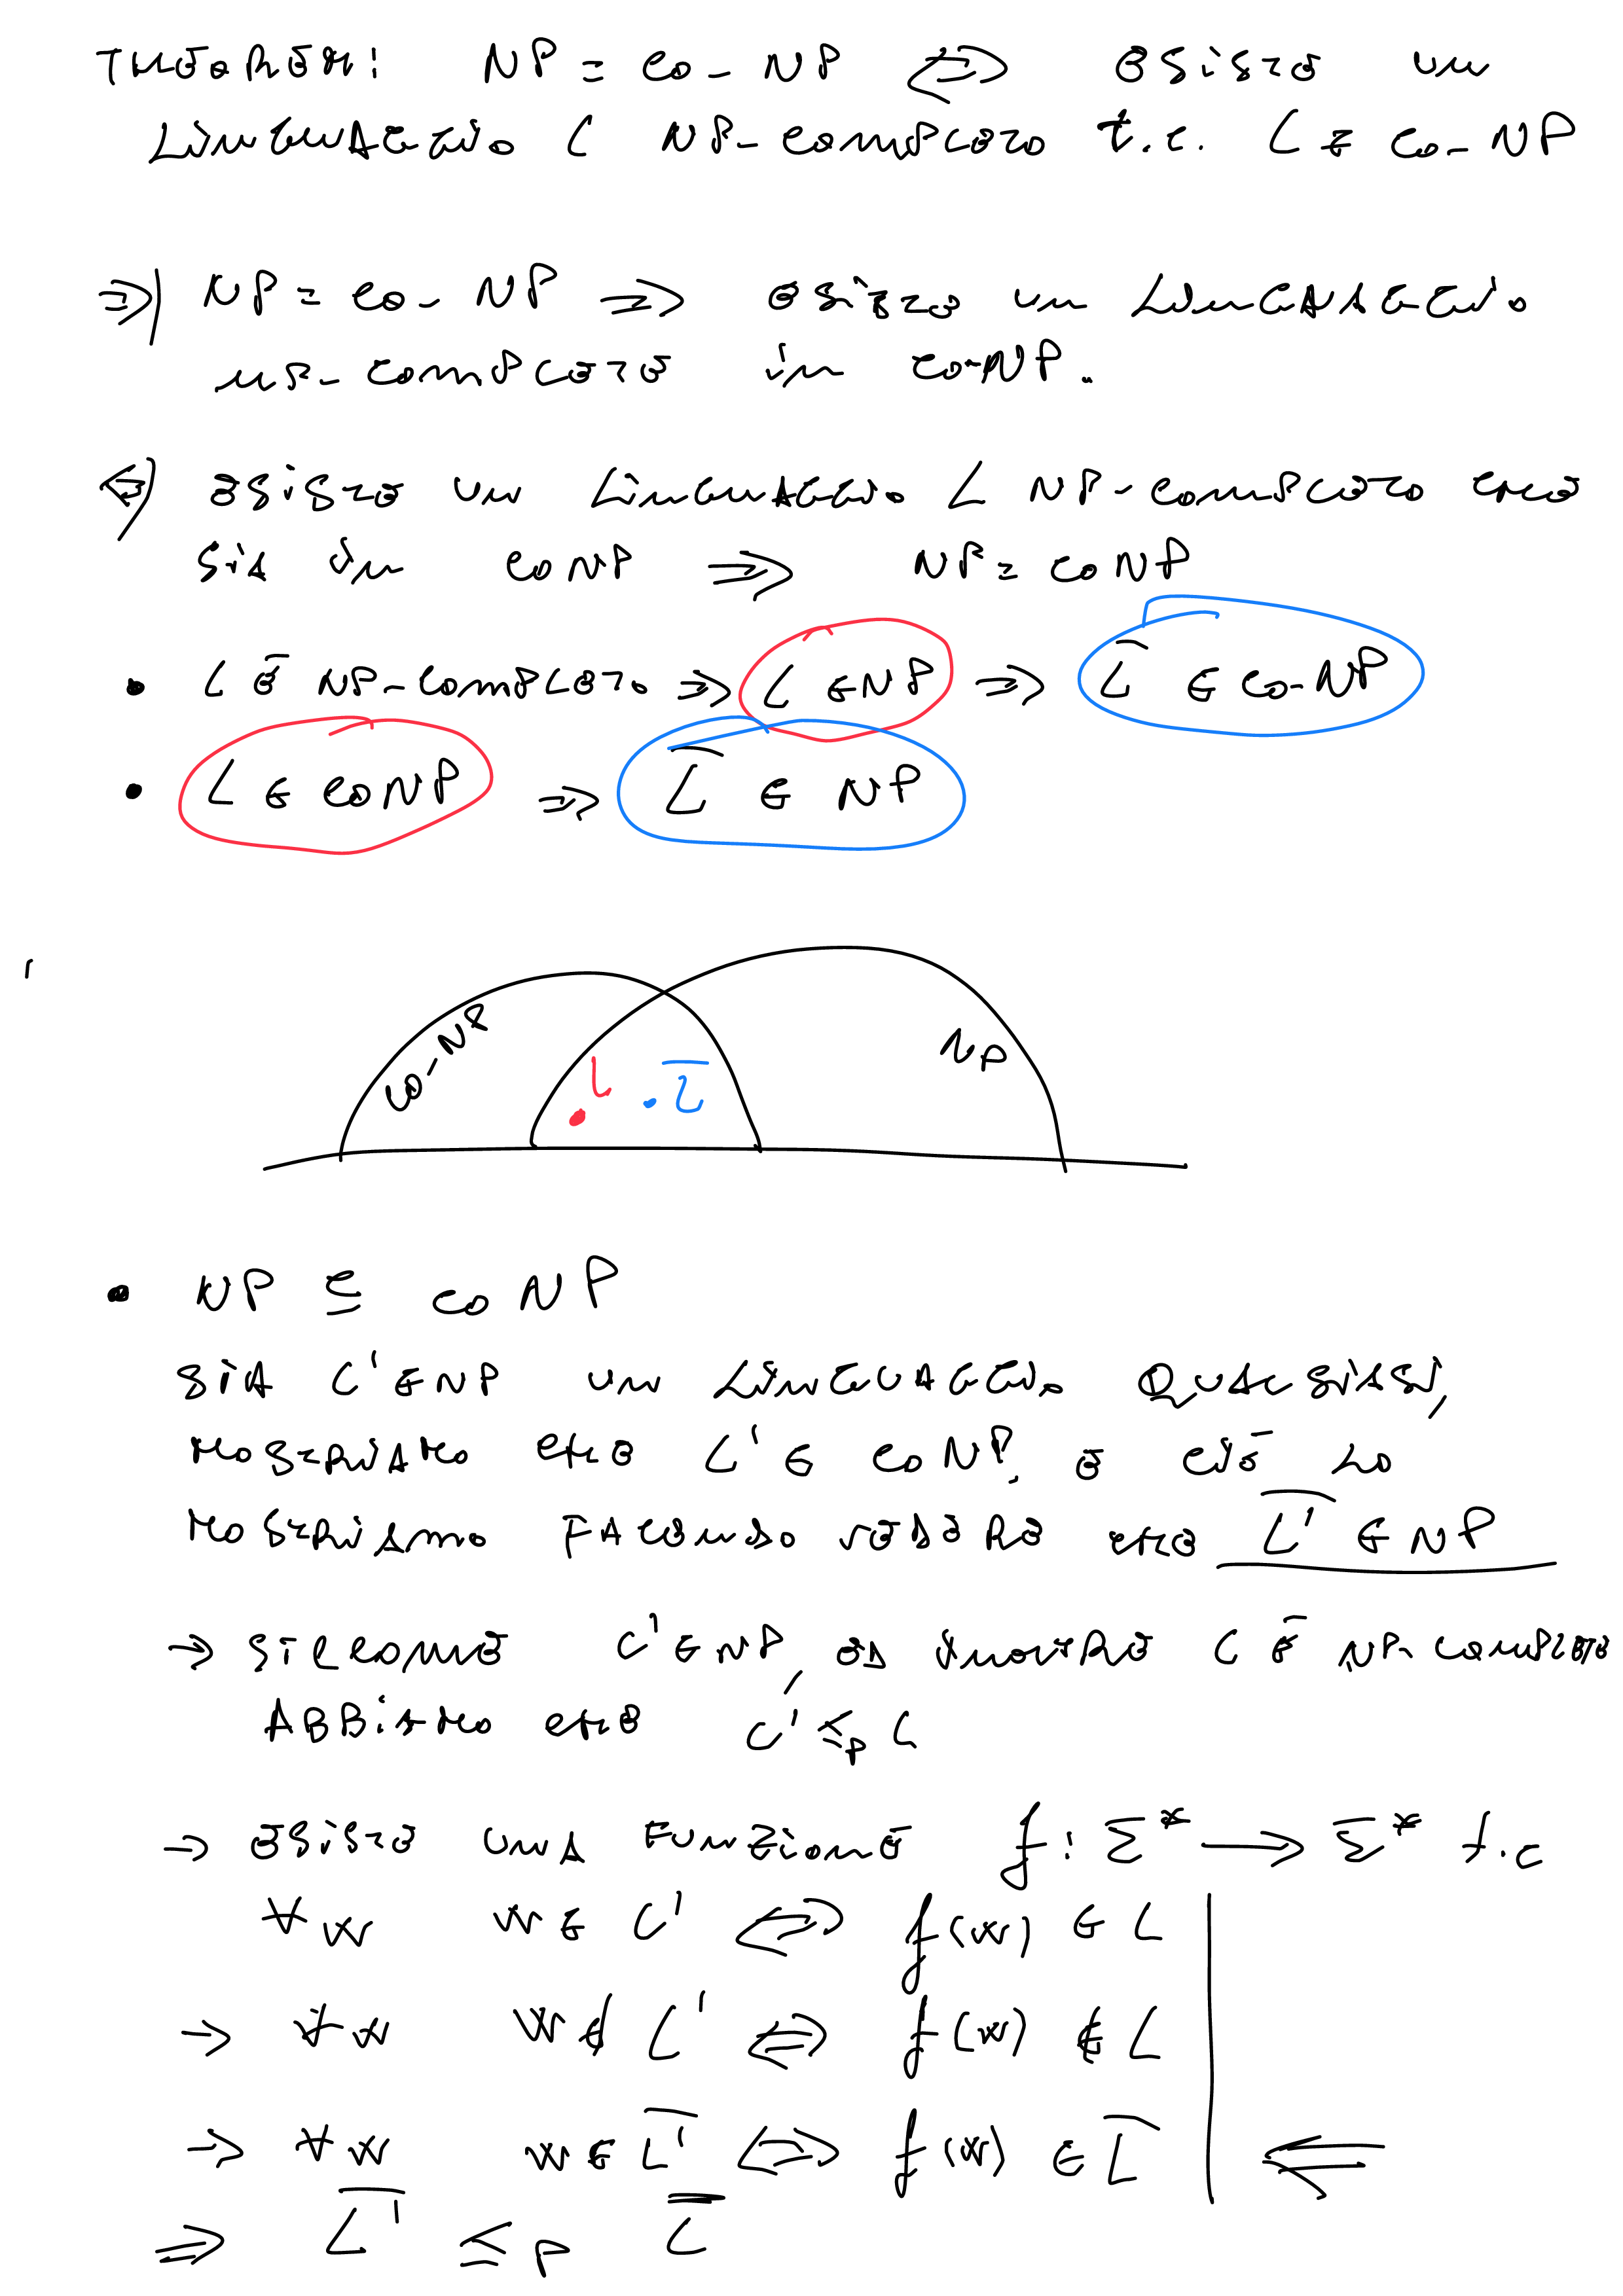 THEOREM: NP = co-NP ⟺ ESISTE un
LiNGUAGGio L NP-COMPLETO t.c. L ∈ co-NP
⇒) NP = co-NP ⇒ ESISTE un LiNGUAGGio
NP-COMPLETO in co-NP.
⇐) ESISTE un LiNGUAGGio L NP-COMPLETO CHE
SiA in coNP ⇒ NP = coNP
• L È NP-COMPLETO ⇒ L ∈ NP ⇒ L̅ ∈ co-NP
• L ∈ coNP ⇒ L̅ ∈ NP
co-NP
NP
L
L̅
• NP ⊆ coNP
SiA L' ∈ NP un LiNGUAGGio QUALSiASi,
MOSTRiAMO CHE L' ∈ coNP, E CiÒ LO
MOSTRiAMO FACENDO VEDERE CHE L̅'̅ ∈ NP
→ SiCCOME L' ∈ NP, ED iNOLTRE L È NP-COMPLETO
ABBiAMO CHE L' ≤p L
→ ESISTE UNA FUNZiONE f : Σ* → Σ* t.c
∀w w ∈ L' ⟺ f(w) ∈ L
→ ∀w w ∉ L' ⟺ f(w) ∉ L
→ ∀w w ∈ L̅'̅ ⟺ f(w) ∈ L̅ ⟸
⇒ L̅'̅ ≤p L̅